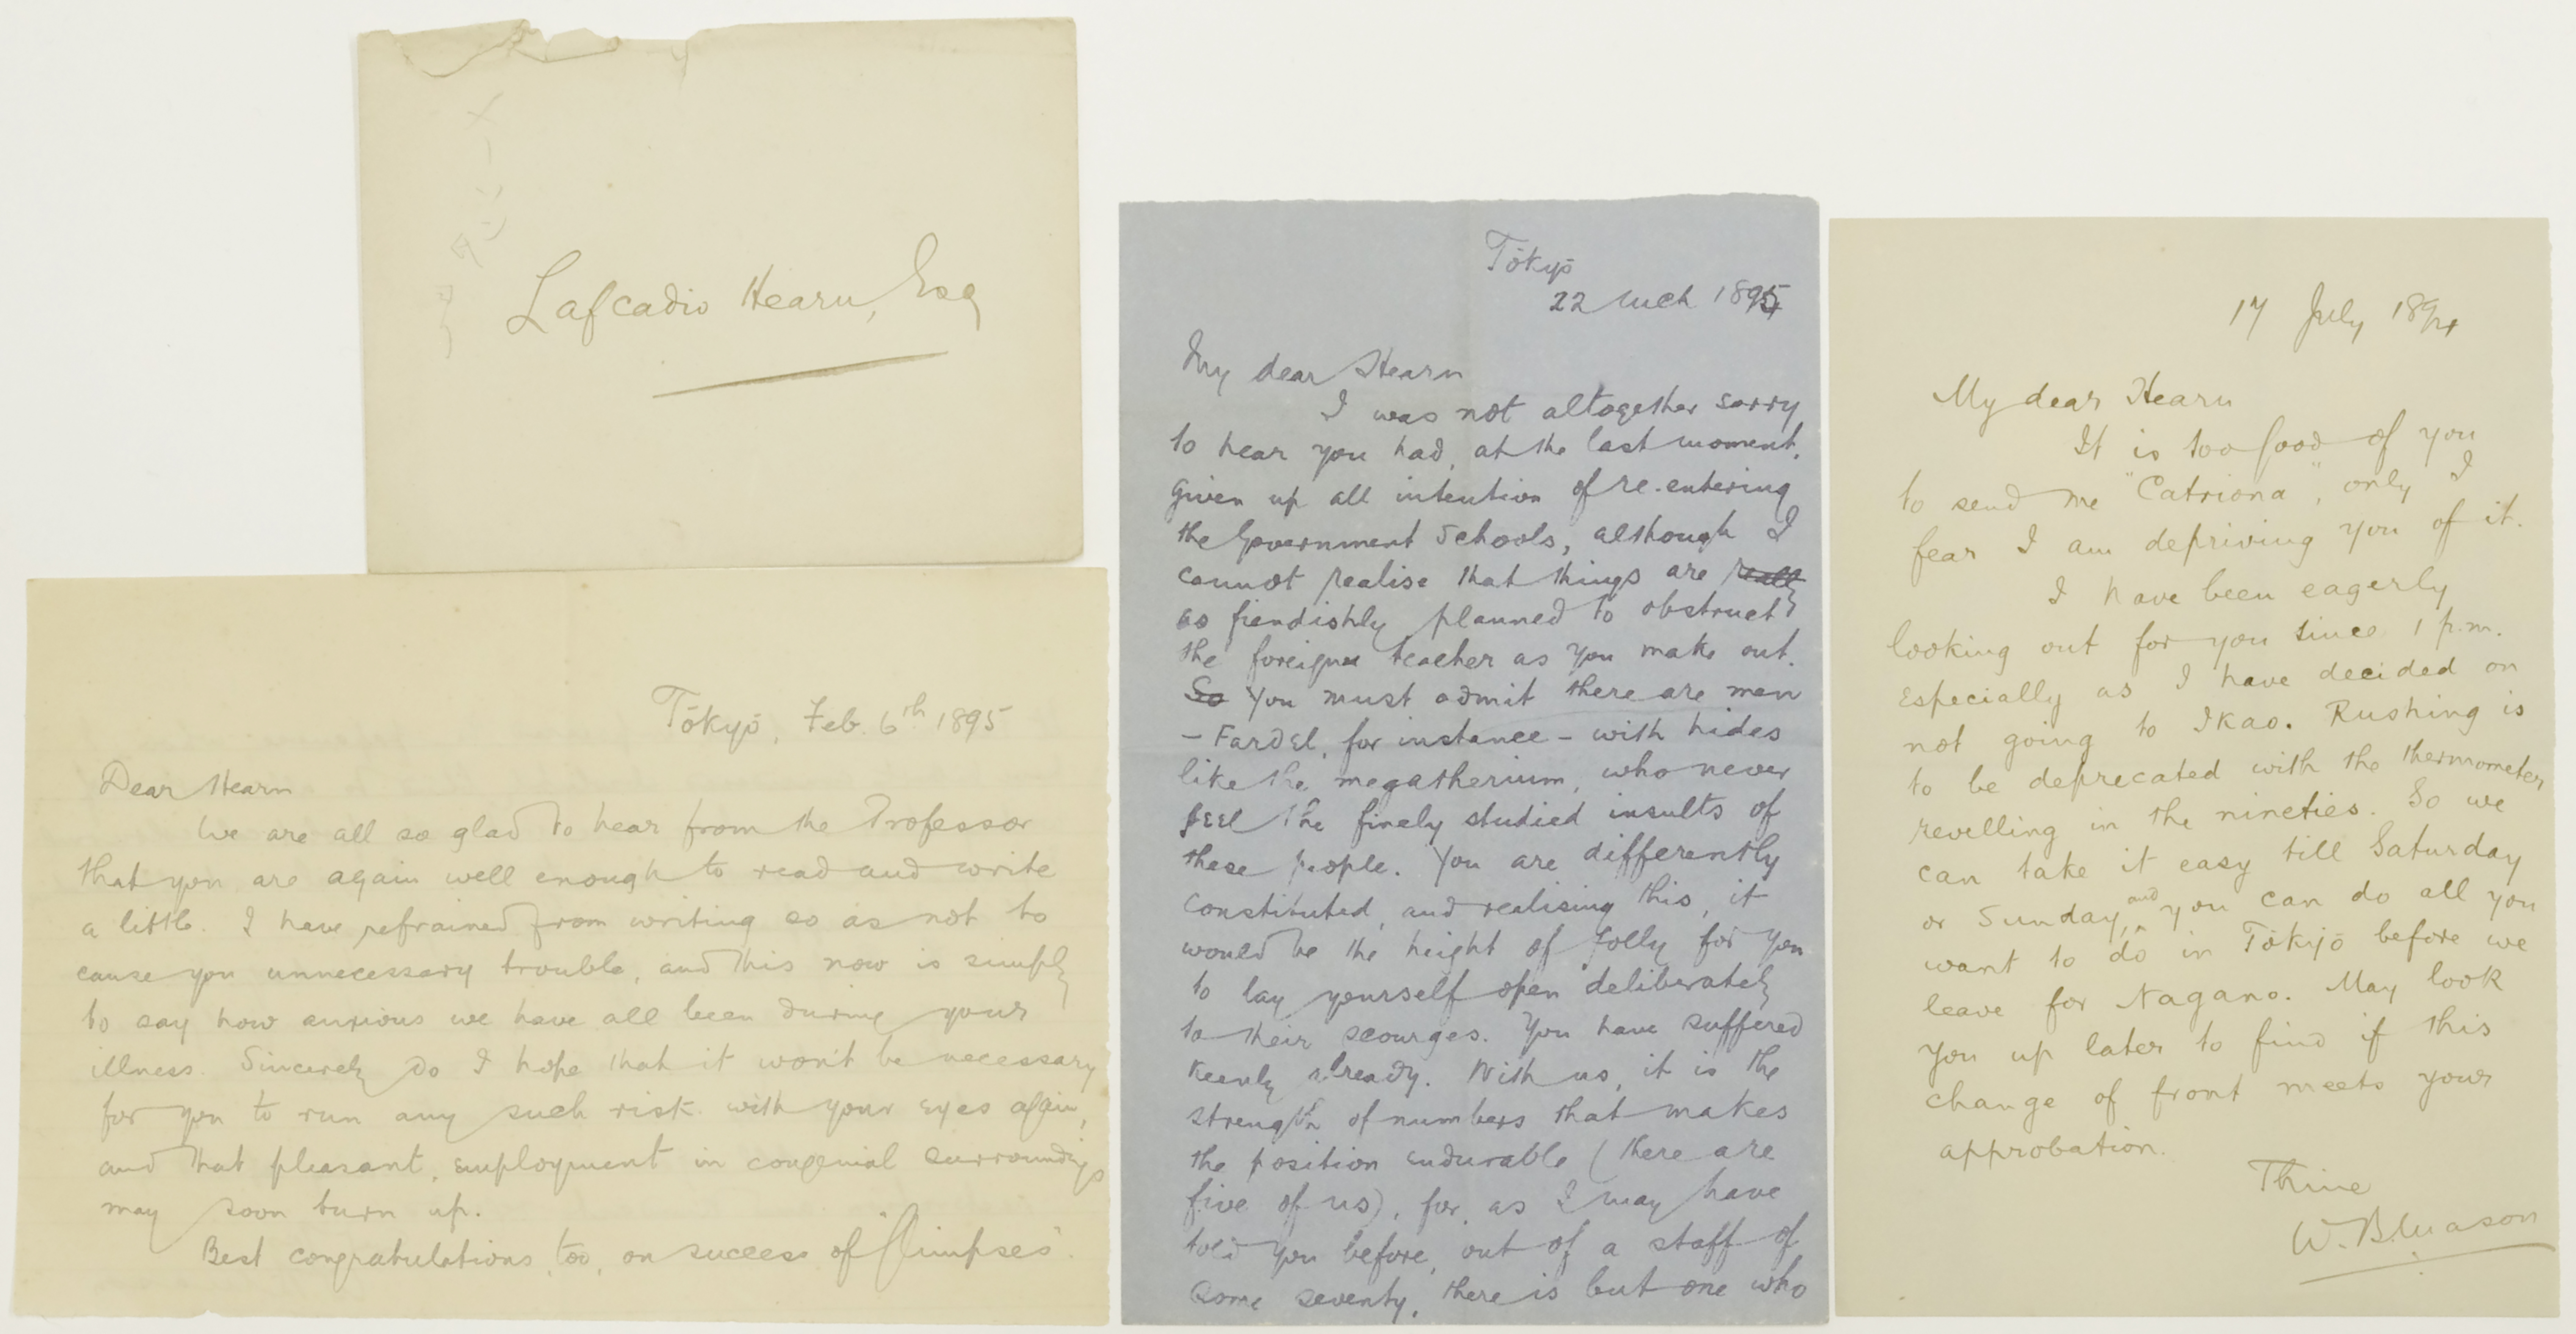 Lafcadio Hearn, Esq
Tōkyō, Feb. 6th 1895
Dear Hearn
We are all so glad to hear from the Professor
that you are again well enough to read and write
a little. I have refrained from writing so as not to
cause you unnecessary trouble, and this now is simply
to say how anxious we have all been during your
illness. Sincerely do I hope that it won't be necessary
for you to run any such risk with your eyes again,
and that pleasant employment in congenial surroundings
may soon turn up.
Best congratulations, too, on success of "Glimpses".
Tōkyō
22 Mch 1895
My dear Hearn
I was not altogether sorry
to hear you had, at the last moment,
given up all intention of re-entering
the Government Schools, although I
cannot realise that things are really
as fiendishly planned to obstruct
the foreign teacher as you make out.
So You must admit there are men
– Fardel, for instance – with hides
like the megatherium, who never
feel the finely studied insults of
these people. You are differently
constituted, and realising this, it
would be the height of folly for you
to lay yourself open deliberately
to their scourges. You have suffered
keenly already. With us, it is the
strength of numbers that makes
the position endurable (there are
five of us), for, as I may have
told you before, out of a staff of
some seventy, there is but one who
17 July 1894
My dear Hearn
It is too good of you
to send me "Catriona", only I
fear I am depriving you of it.
I have been eagerly
looking out for you since 1 p.m.
especially as I have decided on
not going to Ikao. Rushing is
to be deprecated with the thermometer
revelling in the nineties. So we
can take it easy till Saturday
or Sunday, and you can do all you
want to do in Tōkyō before we
leave for Nagano. May look
you up later to find if this
change of front meets your
approbation.
Thine
W. B. Mason